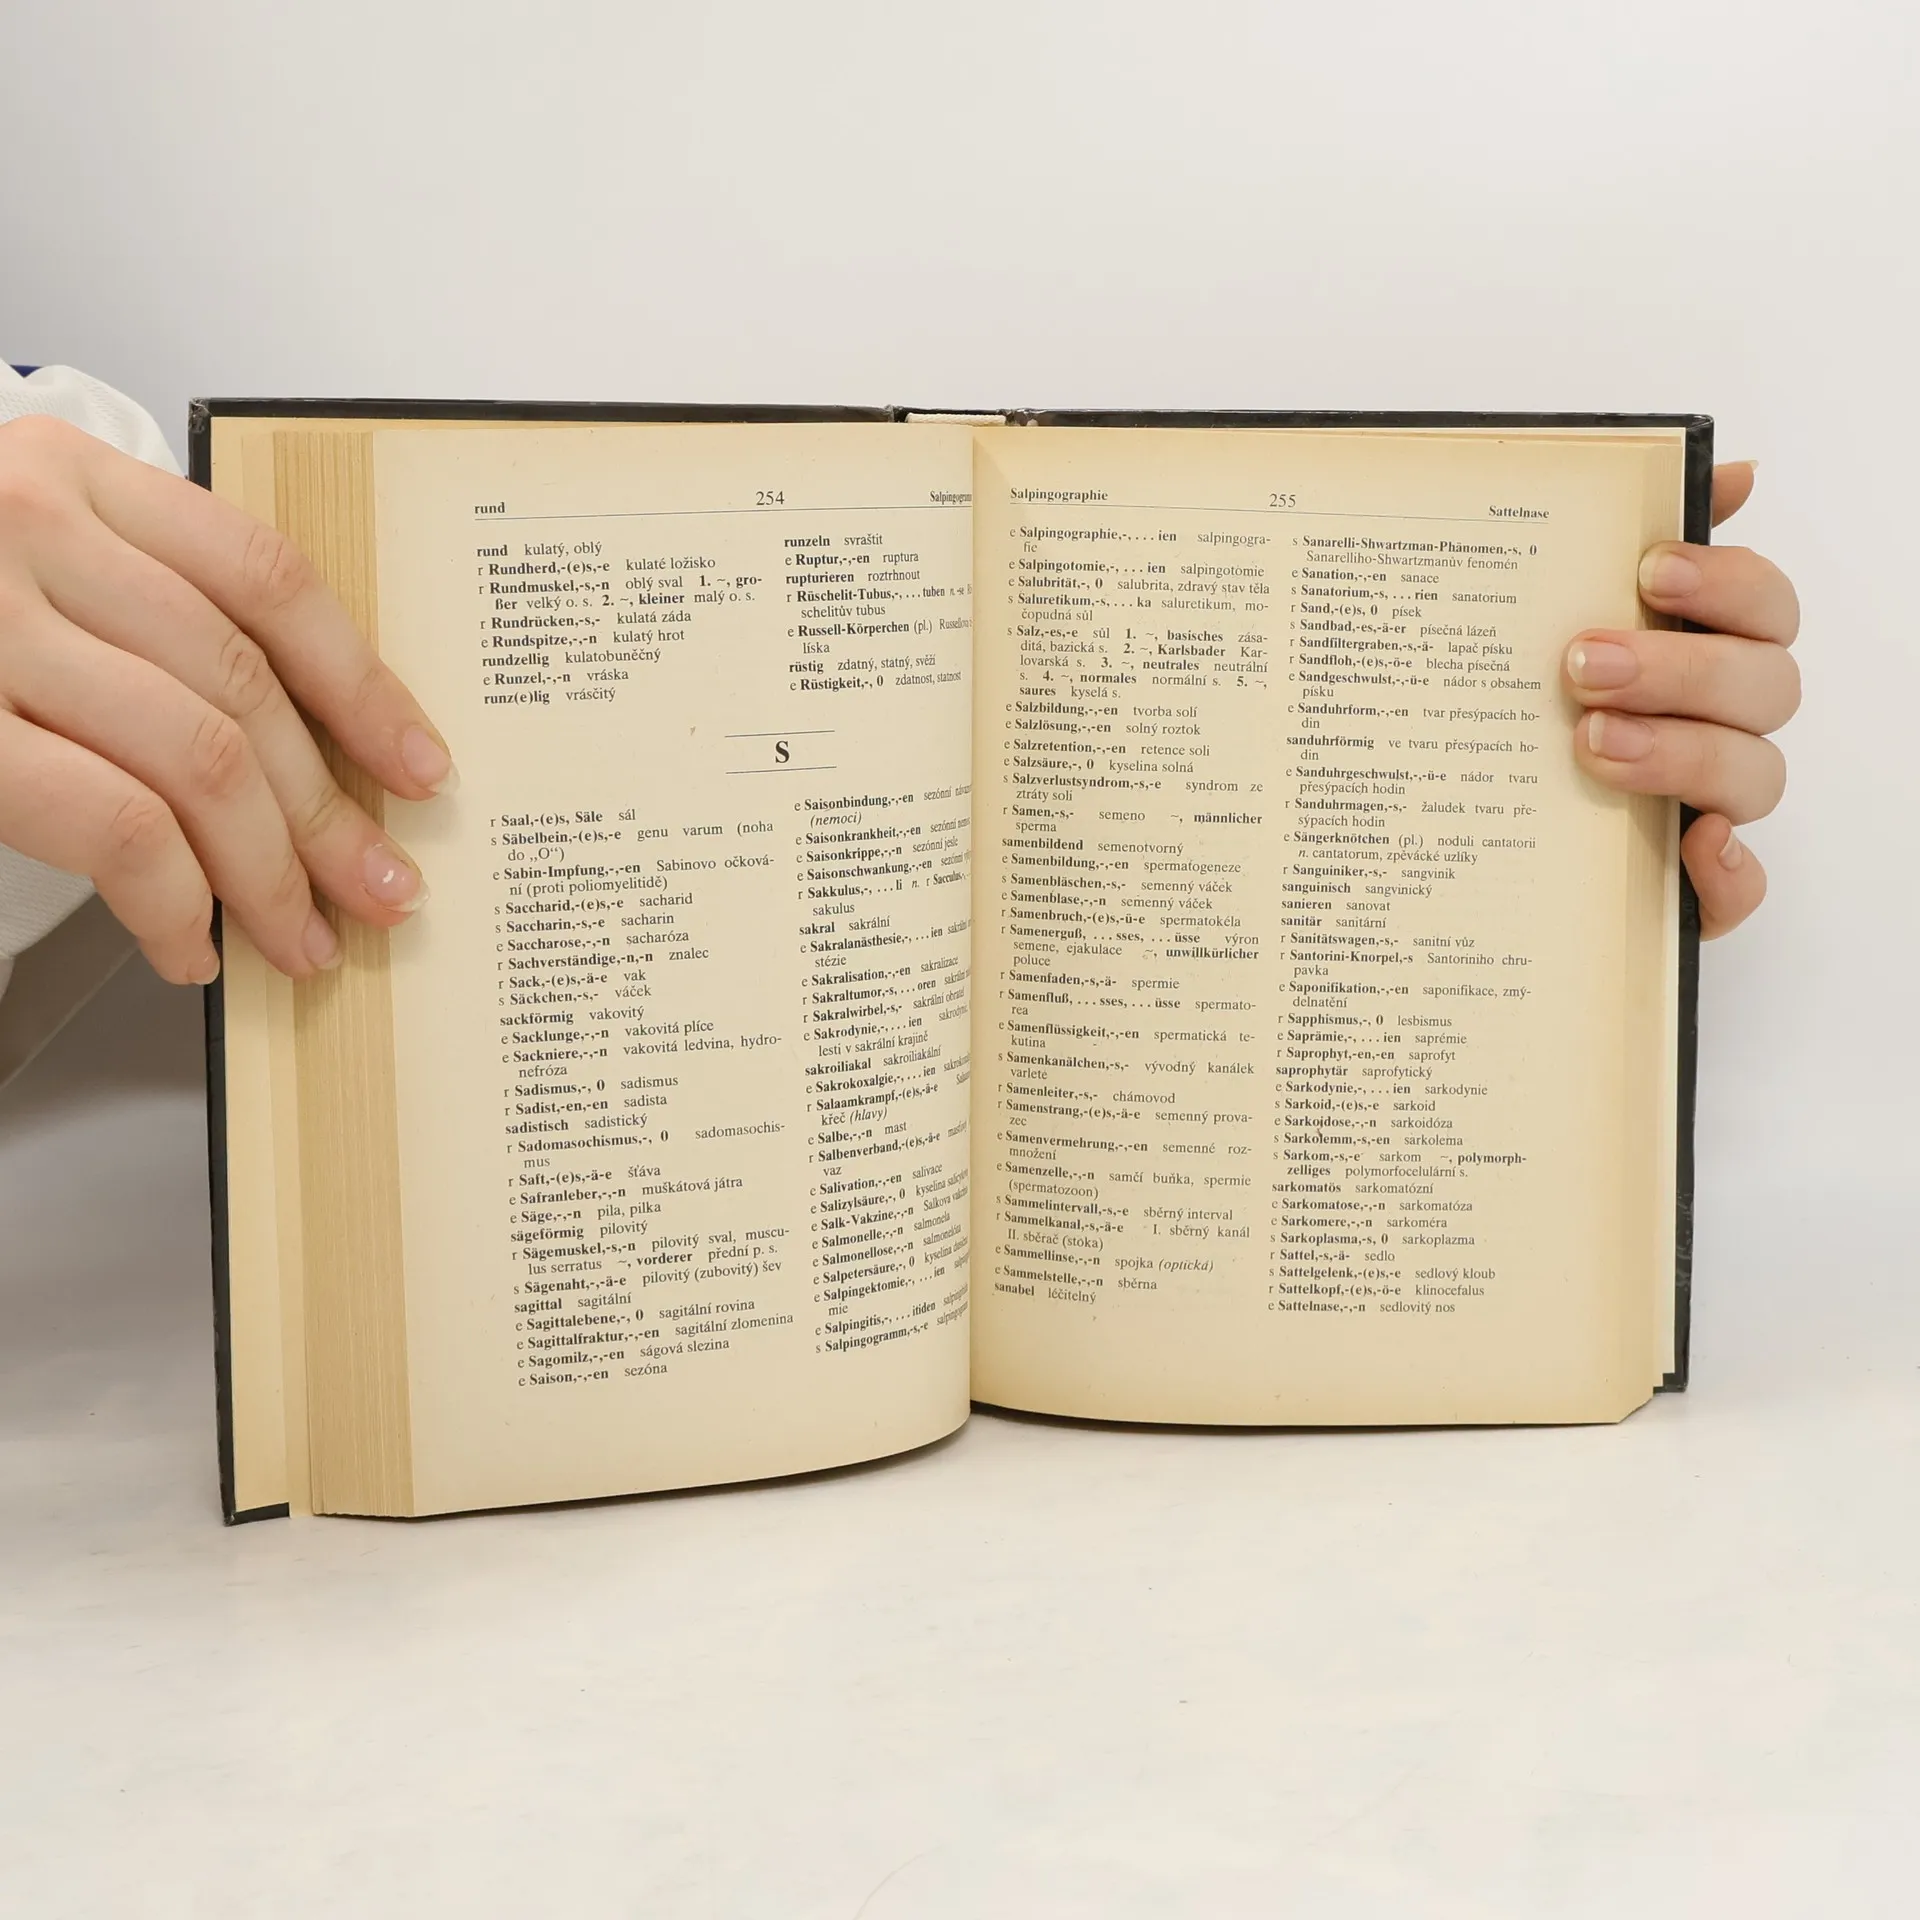 rund 254
rund kulatý, oblý
r Rundherd,-(e)s,-e kulaté ložisko
r Rundmuskel,-s,-n oblý sval 1. ~, gro-
ßer velký o. s. 2. ~, kleiner malý o. s.
r Rundrücken,-s,- kulatá záda
e Rundspitze,-,-n kulatý hrot
rundzellig kulatobuněčný
e Runzel,-,-n vráska
runz(e)lig vrásčitý
runzeln svraštit
e Ruptur,-,-en ruptura
rupturieren roztrhnout
r Rüschelit-Tubus,-, ...tuben
schelitův tubus
e Russell-Körperchen (pl.)
líska
rüstig zdatný, statný, svěží
e Rüstigkeit,-, 0 zdatnost, statnost
S
r Saal,-(e)s, Säle sál
s Säbelbein,-(e)s,-e genu varum (noha
do „O“)
e Sabin-Impfung,-,-en Sabinovo očková-
ní (proti poliomyelitidě)
s Saccharid,-(e)s,-e sacharid
s Saccharin,-s,-e sacharin
e Saccharose,-,-n sacharóza
r Sachverständige,-n,-n znalec
r Sack,-(e)s,-ä-e vak
s Säckchen,-s,- váček
sackförmig vakovitý
e Sacklunge,-,-n vakovitá plíce
e Sackniere,-,-n vakovitá ledvina, hydro-
nefróza
r Sadismus,-, 0 sadismus
r Sadist,-en,-en sadista
sadistisch sadistický
r Sadomasochismus,-, 0 sadomasochis-
mus
r Saft,-(e)s,-ä-e šťáva
e Safranleber,-,-n muškátová játra
e Säge,-,-n pila, pilka
sägeförmig pilovitý
r Sägemuskel,-s,-n pilovitý sval, muscu-
lus serratus ~, vorderer přední p. s.
s Sägenaht,-,-ä-e pilovitý (zubovitý) šev
sagittal sagitální
e Sagittalebene,-, 0 sagitální rovina
e Sagittalfraktur,-,-en sagitální zlomenina
e Sagomilz,-,-en ságová slezina
e Saison,-,-en sezóna
e Saisonbindung,-,-en sezónní
(nemoci)
e Saisonkrankheit,-,-en sezónní
e Saisonkrippe,-,-n sezónní jesle
e Saisonschwankung,-,-en sezónní
r Sakkulus,-, ...li n. r Sacculus
sakulus
sakral sakrální
e Sakralanästhesie,-, ...ien sakrální
stézie
e Sakralisation,-,-en sakralizace
r Sakraltumor,-s, ...oren sakrální
r Sakralwirbel,-s,- sakrální obratel
e Sakrodynie,-, ...ien
lesti v sakrální krajině
sakroiliakal sakroiliakální
e Sakrokoxalgie,-, ...ien
r Salaamkrampf,-(e)s,-ä-e
křeč (hlavy)
e Salbe,-,-n mast
r Salbenverband,-(e)s,-ä-e
vaz
e Salivation,-,-en salivace
e Salizylsäure,-, 0 kyselina salicylová
e Salk-Vakzine,-,-n Salkova vakcína
e Salmonelle,-,-n salmonela
e Salmonellose,-,-n salmonelóza
e Salpetersäure,-, 0 kyselina dusičná
e Salpingektomie,-, ...ien
mie
e Salpingitis,-, ...itiden
s Salpingogramm,-s,-e
Salpingographie 255 Sattelnase
e Salpingographie,-, ...ien salpingogra-
fie
e Salpingotomie,-, ...ien salpingotomie
e Salubrität,-, 0 salubrita, zdravý stav těla
s Saluretikum,-s, ...ka saluretikum, mo-
čopudná sůl
s Salz,-es,-e sůl 1. ~, basisches zása-
ditá, bazická s. 2. ~, Karlsbader Kar-
lovarská s. 3. ~, neutrales neutrální
s. 4. ~, normales normální s. 5. ~,
saures kyselá s.
e Salzbildung,-,-en tvorba solí
e Salzlösung,-,-en solný roztok
e Salzretention,-,-en retence soli
e Salzsäure,-, 0 kyselina solná
s Salzverlustsyndrom,-s,-e syndrom ze
ztráty soli
r Samen,-s,- semeno ~, männlicher
sperma
samenbildend semenotvorný
e Samenbildung,-,-en spermatogeneze
s Samenbläschen,-s,- semenný váček
e Samenblase,-,-n semenný váček
r Samenbruch,-(e)s,-ü-e spermatokéla
r Samenerguß, ...sses, ...üsse výron
semene, ejakulace ~, unwillkürlicher
poluce
r Samenfaden,-s,-ä- spermie
r Samenfluß, ...sses, ...üsse spermato-
rea
e Samenflüssigkeit,-,-en spermatická te-
kutina
s Samenkanälchen,-s,- vývodný kanálek
varlete
r Samenleiter,-s,- chámovod
r Samenstrang,-(e)s,-ä-e semenný prova-
zec
e Samenvermehrung,-,-en semenné roz-
množení
e Samenzelle,-,-n samčí buňka, spermie
(spermatozoon)
s Sammelintervall,-s,-e sběrný interval
r Sammelkanal,-s,-ä-e I. sběrný kanál
II. sběrač (stoka)
e Sammellinse,-,-n spojka (optická)
e Sammelstelle,-,-n sběrna
sanabel léčitelný
s Sanarelli-Shwartzman-Phänomen,-s, 0
Sanarelliho-Shwartzmanův fenomén
e Sanation,-,-en sanace
s Sanatorium,-s, ...rien sanatorium
r Sand,-(e)s, 0 písek
s Sandbad,-es,-ä-er písečná lázeň
r Sandfiltergraben,-s,-ä- lapač písku
r Sandfloh,-(e)s,-ö-e blecha písečná
e Sandgeschwulst,-,-ü-e nádor s obsahem
písku
e Sanduhrform,-,-en tvar přesýpacích ho-
din
sanduhrförmig ve tvaru přesýpacích ho-
din
e Sanduhrgeschwulst,-,-ü-e nádor tvaru
přesýpacích hodin
r Sanduhrmagen,-s,- žaludek tvaru pře-
sýpacích hodin
e Sängerknötchen (pl.) noduli cantatorii
n. cantatorum, zpěvácké uzlíky
r Sanguiniker,-s,- sangvinik
sanguinisch sangvinický
sanieren sanovat
sanitär sanitární
r Sanitätswagen,-s,- sanitní vůz
r Santorini-Knorpel,-s Santoriniho chru-
pavka
e Saponifikation,-,-en saponifikace, zmý-
delnatění
r Sapphismus,-, 0 lesbismus
e Saprämie,-, ...ien saprémie
r Saprophyt,-en,-en saprofyt
saprophytär saprofytický
e Sarkodynie,-, ...ien sarkodynie
s Sarkoid,-(e)s,-e sarkoid
e Sarkoidose,-,-n sarkoidóza
s Sarkolemm,-s,-en sarkolema
s Sarkom,-s,-e sarkom ~, polymorph-
zelliges polymorfocelulární s.
sarkomatös sarkomatózní
e Sarkomatose,-,-n sarkomatóza
e Sarkomere,-,-n sarkoméra
s Sarkoplasma,-s, 0 sarkoplazma
r Sattel,-s,-ä- sedlo
s Sattelgelenk,-(e)s,-e sedlový kloub
r Sattelkopf,-(e)s,-ö-e klinocefalus
e Sattelnase,-,-n sedlovitý nos